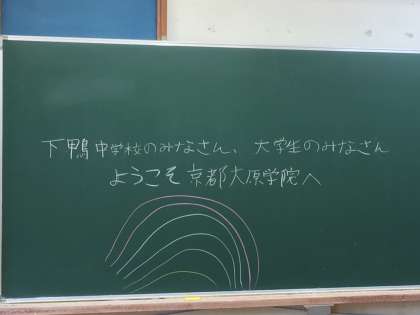 下鴨中学校のみなさん、大学生のみなさん
ようこそ京都大原学院へ